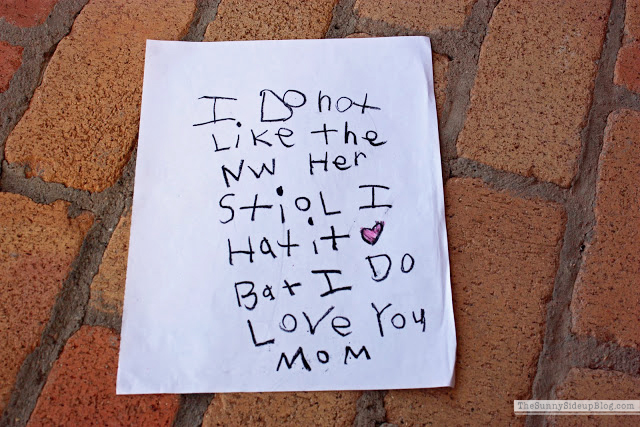 I. Do not
Like the
NW Her
StioL I
Hat it
Bat I Do
Love You
MOM
TheSunnySideupBlog.com